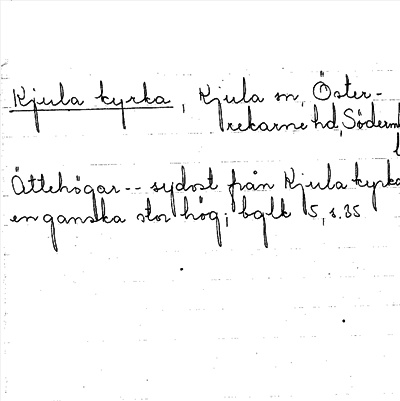 Kjula kyrka, Kjula sn, Öster-
rekarne hd, Söderm
Ättehögar -- sydost från Kjula kyrka
en ganska stor hög; bglk 15, s. 35